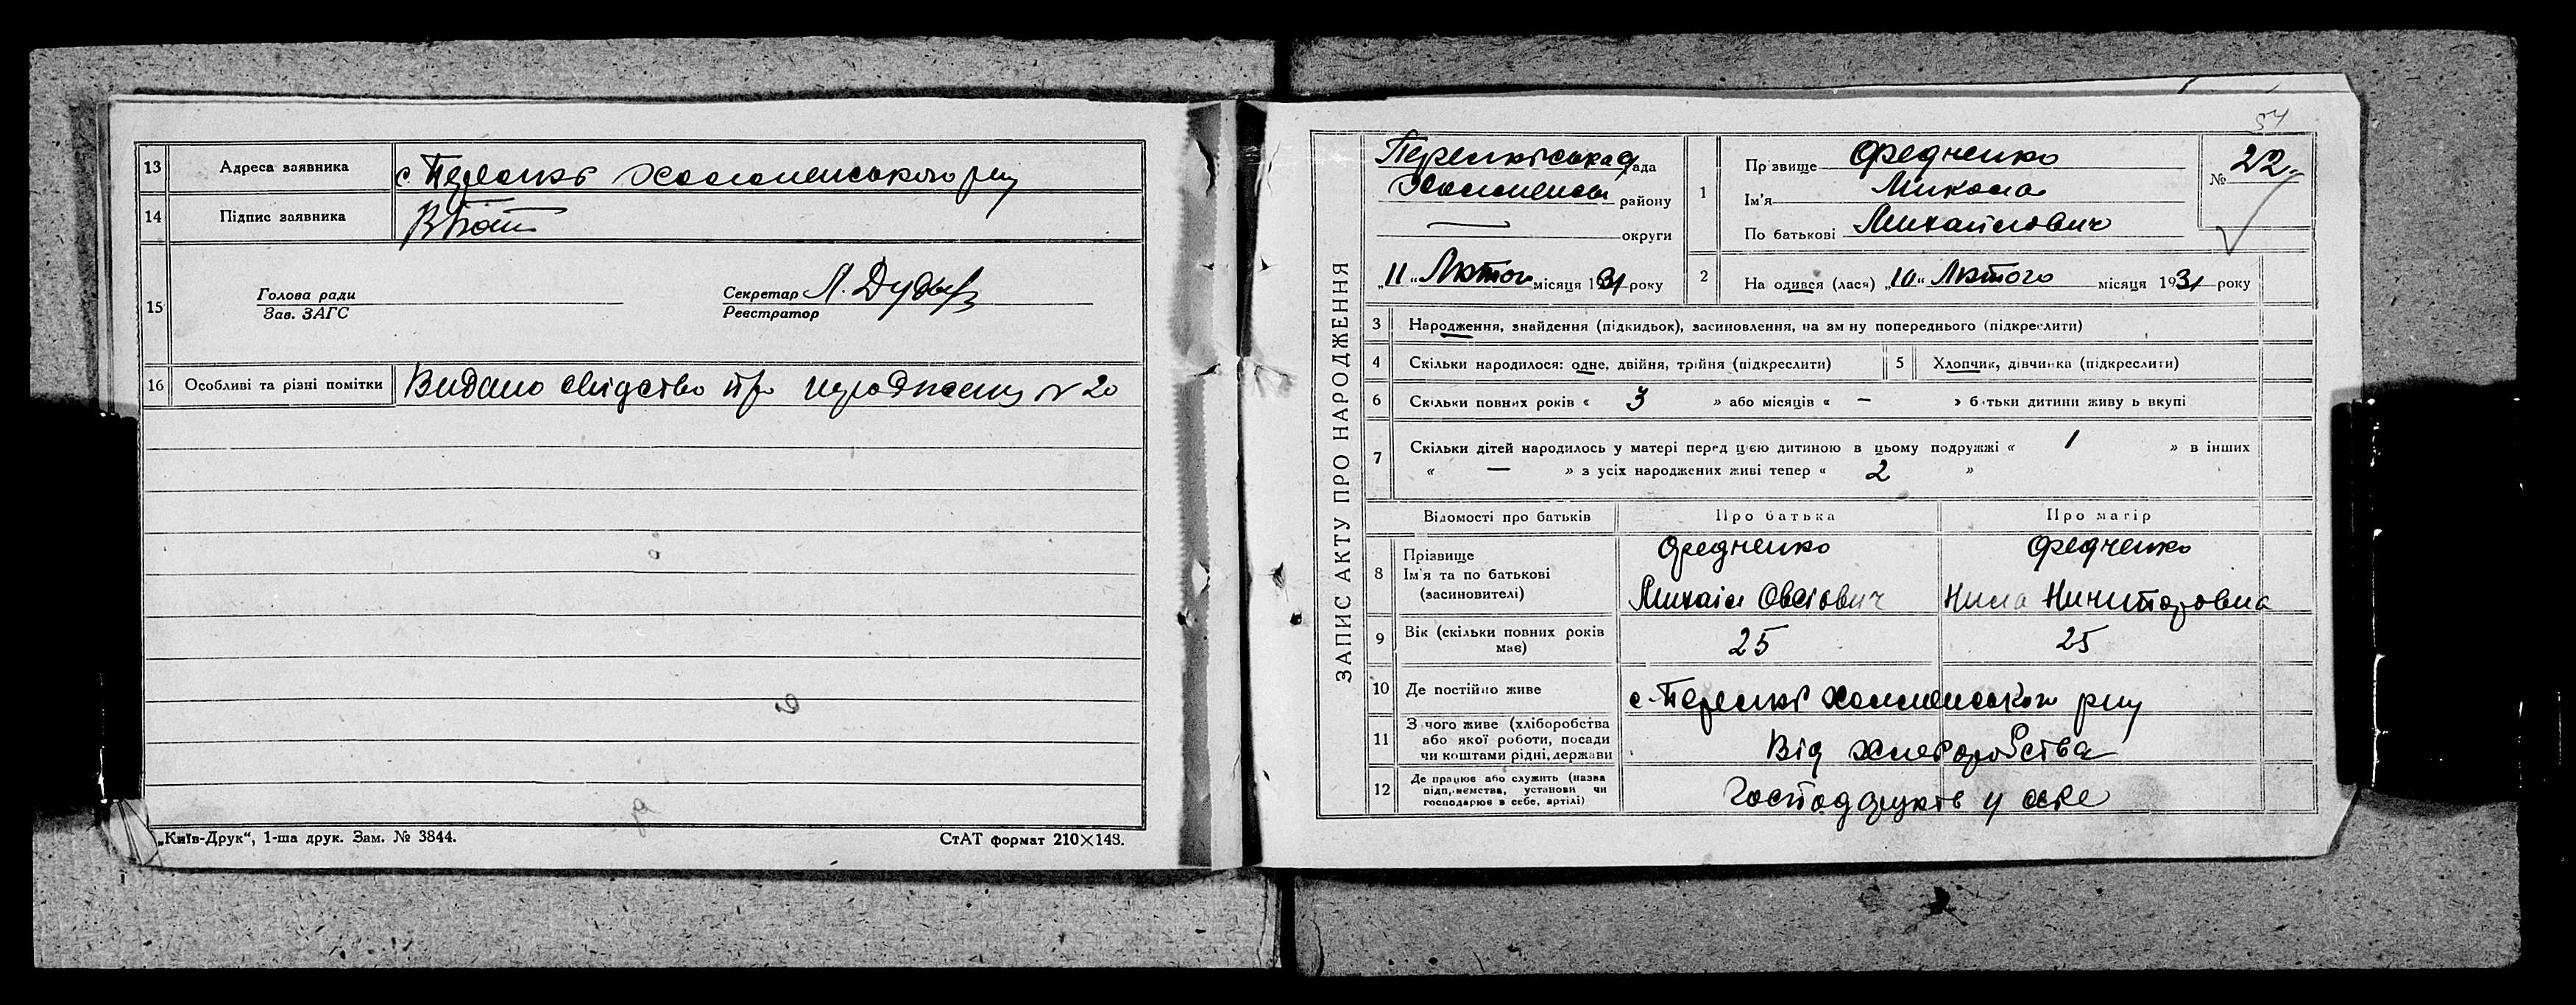 13 Адреса заявника с. Перелюбі Холменського р-ну
14 Підпис заявника
15 Голова ради Секретар
Зав. ЗАГС Реєстратор
16 Особливі та різні помітки Видано свідоство про народження № 20
„Київ-Друк“, 1-ша друк. Зам. № 3844. СтАТ формат 210×148.
54
ЗАПИС АКТУ ПРО НАРОДЖЕННЯ
рада
Холменськ району
округи
„11“ Лютого місяця 1931 року
1 Прізвище Федченко
Ім'я Микола
По батькові Михайлович
№ 22
2 Народився (лася) „10“ Лютого місяця 1931 року
3 Народження, знайдення (підкидьок), засиновлення, на зміну попереднього (підкреслити)
4 Скільки народилося: одне, двійня, трійня (підкреслити) 5 Хлопчик, дівчинка (підкреслити)
6 Скільки повних років « 3 » або місяців « — » батьки дитини живуть вкупі
7 Скільки дітей народилось у матері перед цією дитиною в цьому подружжі « 1 » в інших
« — » з усіх народжених живі тепер « 2 »
Відомості про батьків Про батька Про матір
8 Прізвище Федченко Федченко
Ім'я та по батькові
(засиновителі) Михаіл Овсіович Нина Ничипоровна
9 Вік (скільки повних років має) 25 25
10 Де постійно живе с. Перелюбі Холменського р-ну
11 З чого живе (хліборобства
або якої роботи, посади
чи коштами рідні, держави Від хлеборобства
12 Де працює або служить (назва
підприємства, установи чи
господарює в себе, артілі) у себе